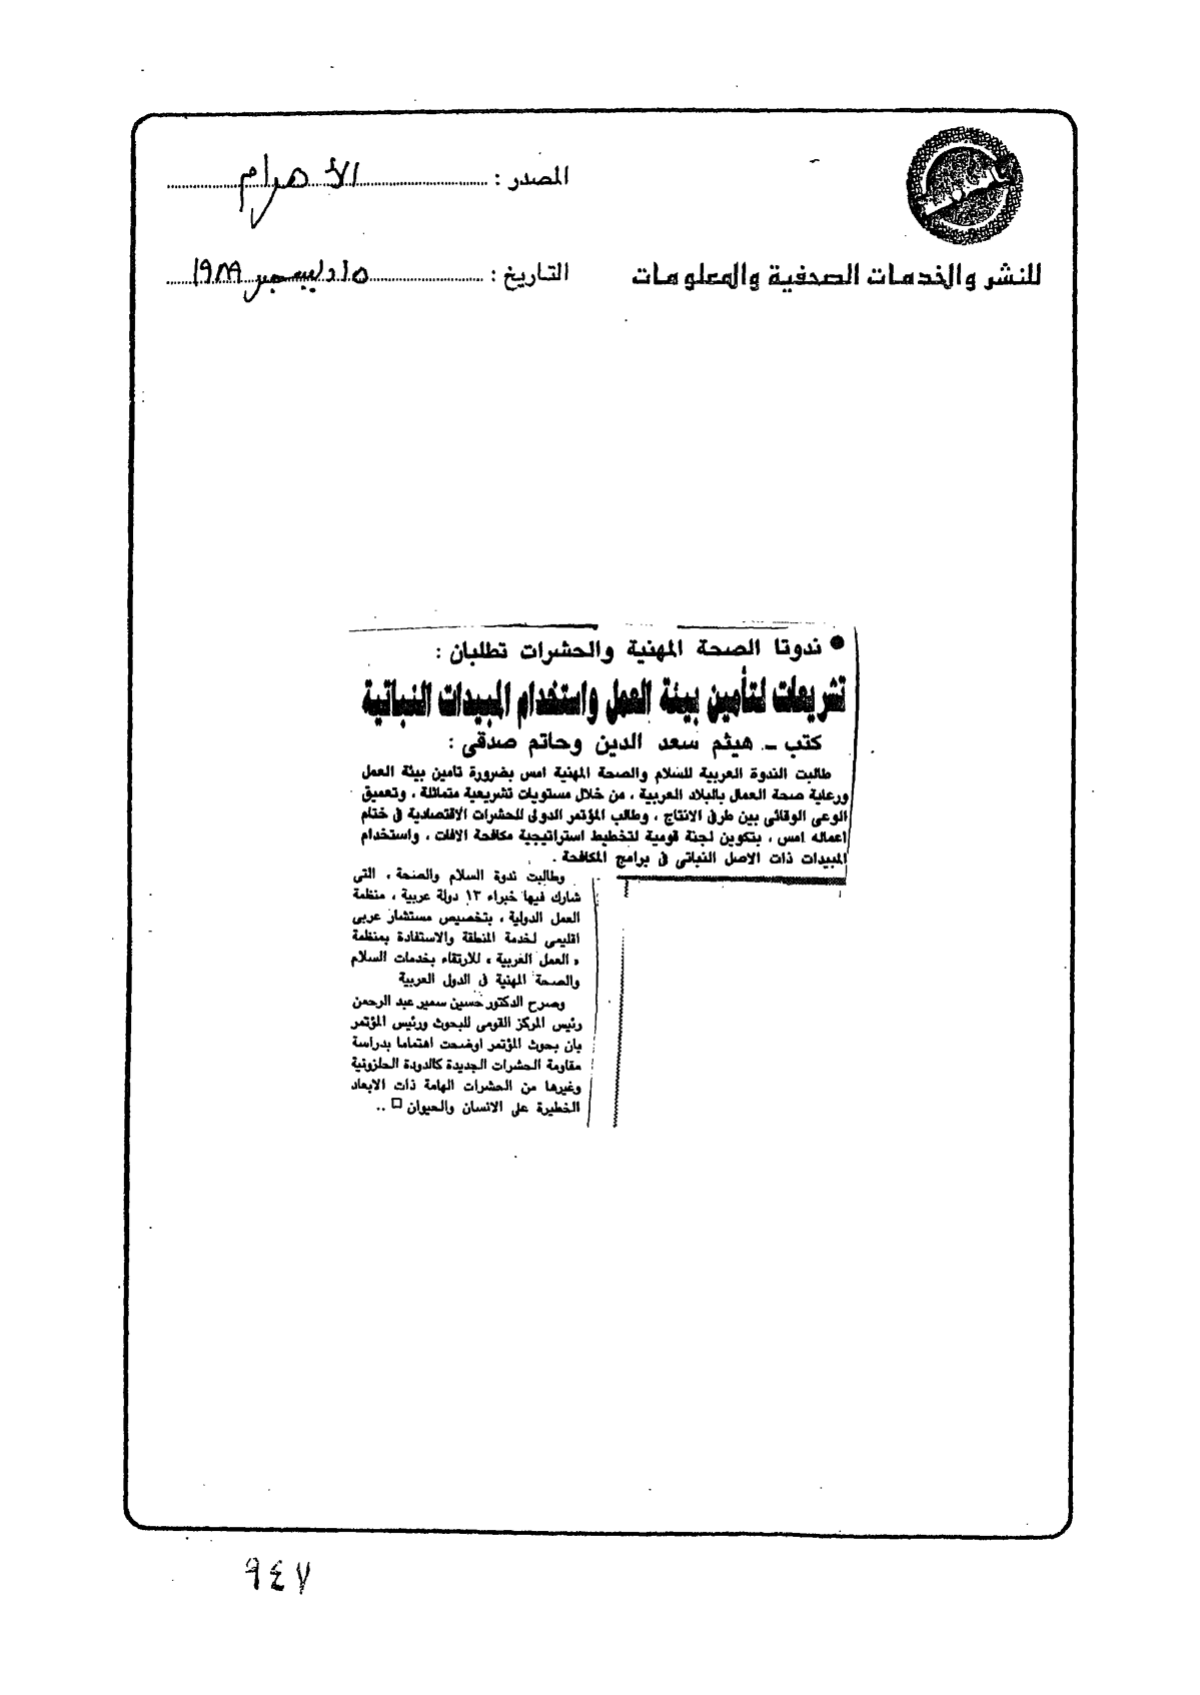 المصدر : الأهرام
للنشر والخدمات الصحفية والمعلومات
التاريخ : ١٥ ديسمبر ١٩٨٩
● ندوتا الصحة المهنية والحشرات تطلبان :
تشريعات لتأمين بيئة العمل واستخدام المبيدات النباتية
كتب ـ هيثم سعد الدين وحاتم صدقى :
طالبت الندوة العربية للسلام والصحة المهنية امس بضرورة تامين بيئة العمل
ورعاية صحة العمال بالبلاد العربية ، من خلال مستويات تشريعية متماثلة ، وتعميق
الوعى الوقائى بين طرفى الانتاج ، وطالب المؤتمر الدولى للحشرات الاقتصادية فى ختام
اعماله امس ، بتكوين لجنة قومية لتخطيط استراتيجية مكافحة الافات ، واستخدام
المبيدات ذات الاصل النباتى فى برامج المكافحة .
وطالبت ندوة السلام والصحة ، التى
شارك فيها خبراء ١٣ دولة عربية ، منظمة
العمل الدولية ، بتخصيص مستشار عربى
اقليمى لخدمة المنطقة والاستفادة بمنظمة
« العمل العربية » للارتقاء بخدمات السلام
والصحة المهنية فى الدول العربية
وصرح الدكتور حسين سمير عبد الرحمن
رئيس المركز القومى للبحوث ورئيس المؤتمر
بان بحوث المؤتمر اوضحت اهتماما بدراسة
مقاومة الحشرات الجديدة كالدودة الحلزونية
وغيرها من الحشرات الهامة ذات الابعاد
الخطيرة على الانسان والحيوان □ ..
٩٤٧